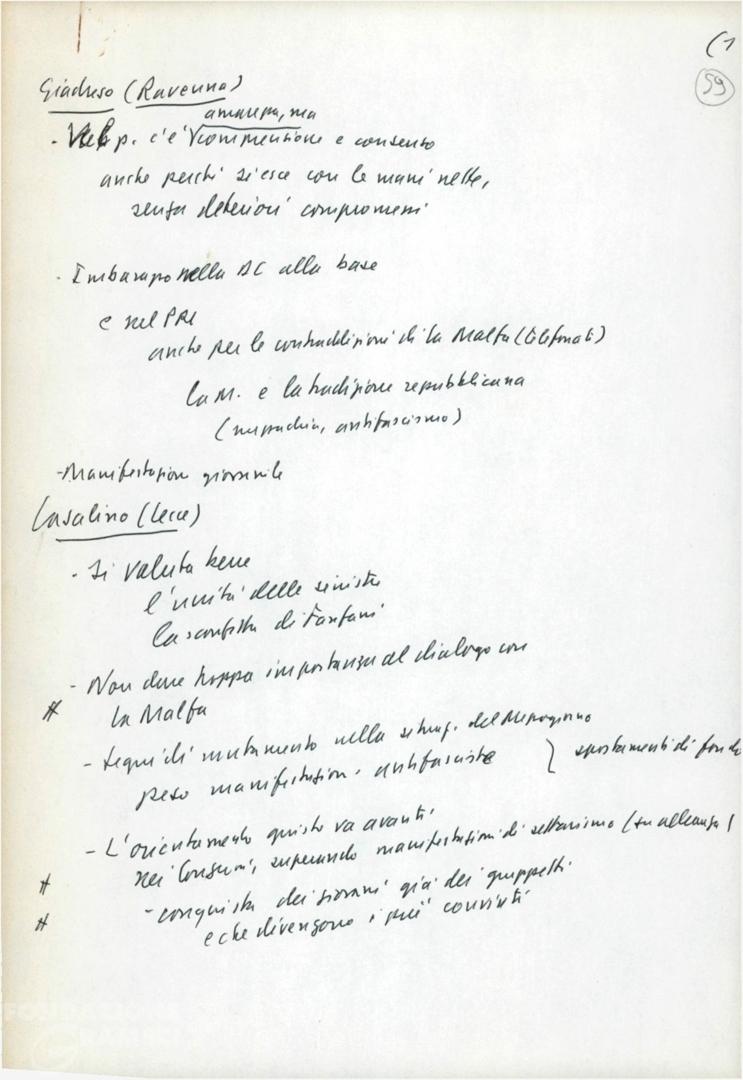 (1
59
Giadresco (Ravenna)
amarezza, ma
- Nel p. c'è comprensione e consenso
anche perché si esce con le mani nette,
senza deteriori compromessi
- Imbarazzo nella DC alla base
e nel PRI
anche per le contraddizioni di La Malfa (telefonati)
La M. e la tradizione repubblicana
(antifascismo)
- Manifestazioni giovanili
Casalino (Lecce)
- Si valuta bene
l'unità delle sinistre
la sconfitta di Fanfani
- Non dare troppa importanza al dialogo con
# La Malfa
- Segni di mutamento nella situaz. del Mezzogiorno
peso manifestazioni antifasciste } spostamenti di fondo
- L'orientamento giusto va avanti
nei Congressi, superando manifestazioni di settarismo (su alleanze)
# - conquista dei giovani già dei gruppetti
# e che divengono i più convinti
FONDAZIONE
GRAMSCI